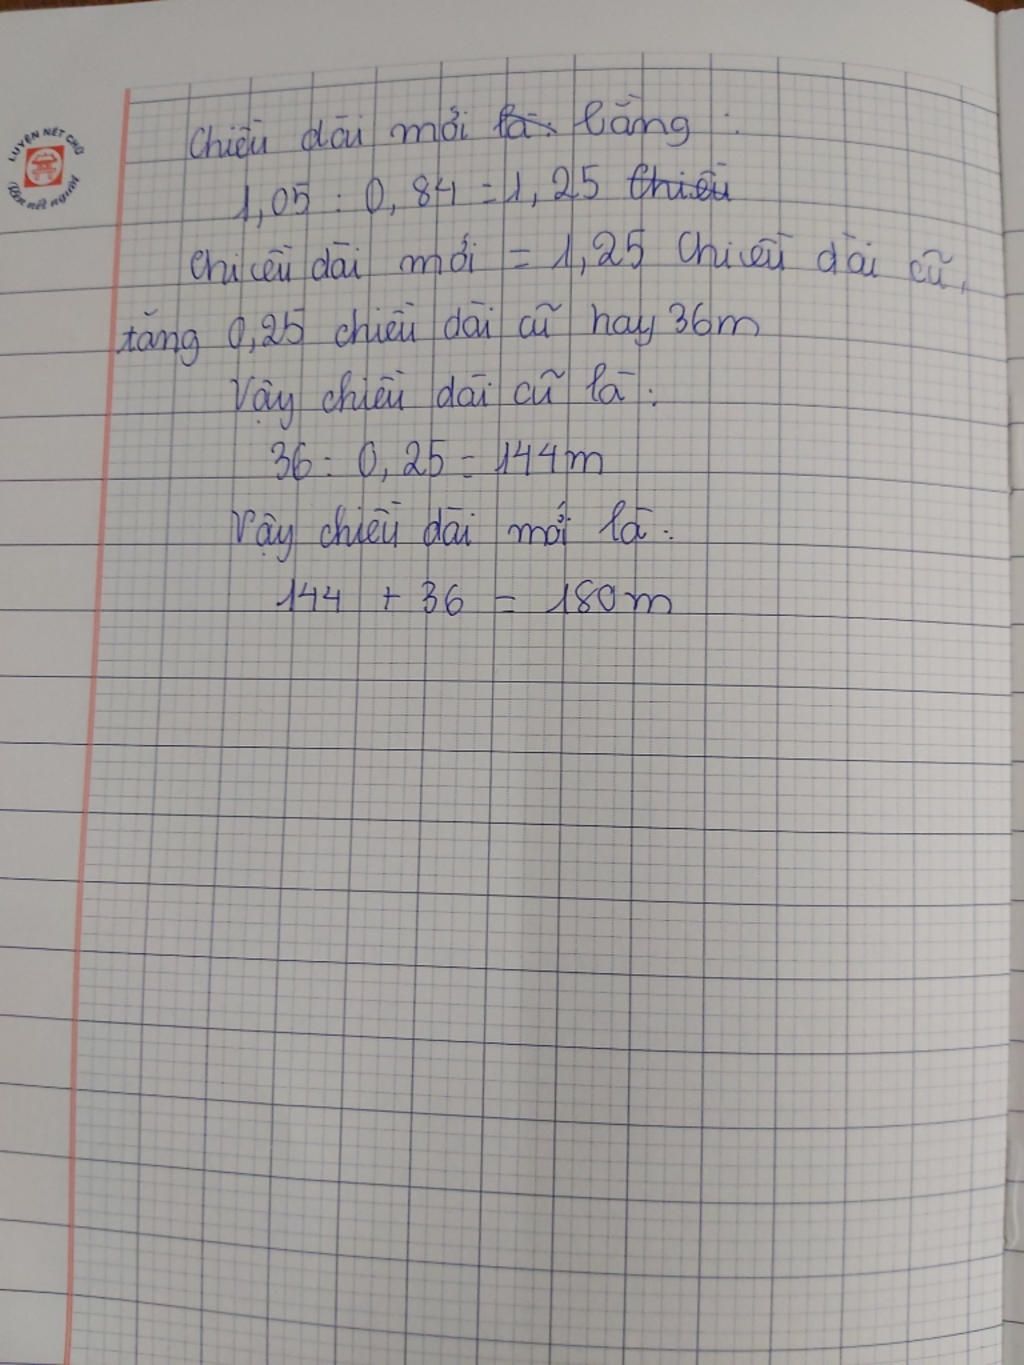 LUYỆN NẾT CHỮ
Rèn nết người
Chiều dài mới là bằng :
1,05 : 0,84 = 1,25 chiều
Chiều dài mới = 1,25 chiều dài cũ,
tăng 0,25 chiều dài cũ hay 36m
Vậy chiều dài cũ là :
36 : 0,25 = 144m
Vậy chiều dài mới là :
144 + 36 = 180m